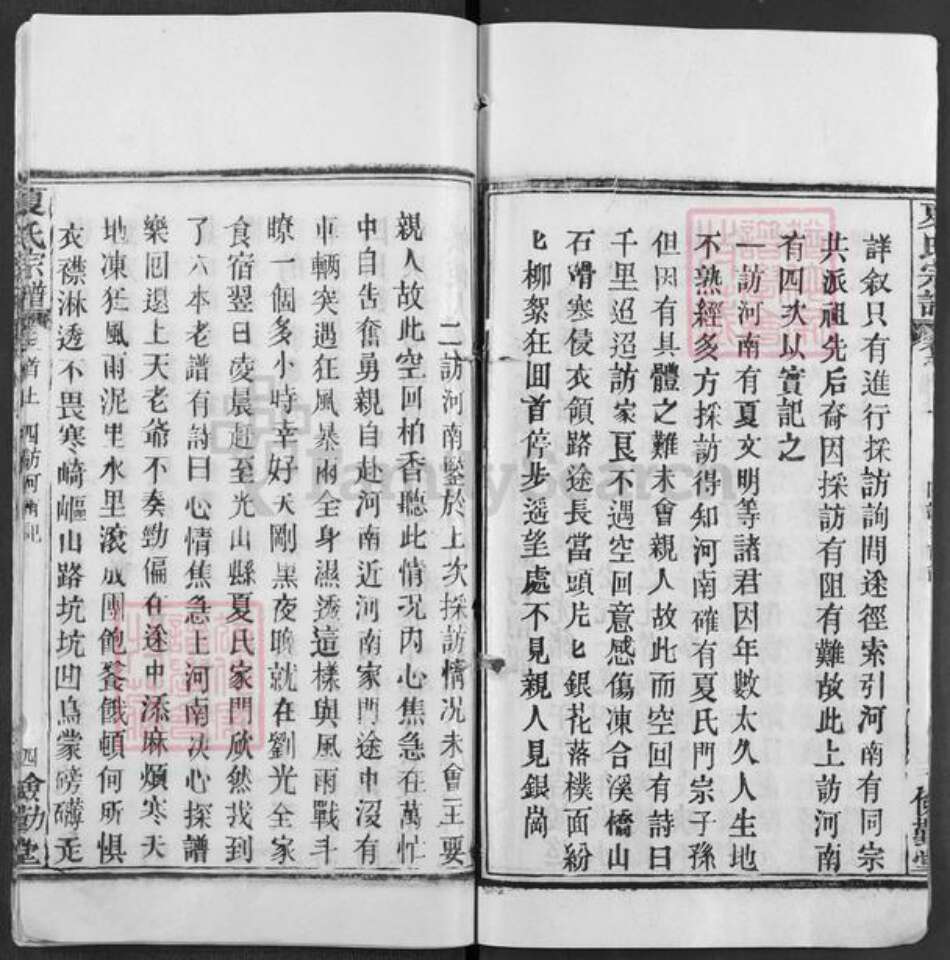 詳叙只有進行採訪詢問途徑索引河南有同宗
共派祖先后裔因採訪有阻有難故此上訪河南
有四次以實記之
一訪河南有夏文明等諸君因年數太久人生地
不熟經多方採訪得知河南確有夏氏門宗子孫
但因有具體之難未會親人故此而空回有詩曰
千里迢迢訪家艮不遇空回意感傷凍合溪橋山
石滑寒侵衣領路途長當頭片匕銀花落樸面紛
匕柳絮狂囬首停步遥望處不見親人見銀崗
夏氏宗譜
二訪河南鑒於上次採訪情况未會主要
親人故此空回柏香聽此情况内心焦急在萬忙
中自告奮勇親自赴河南近河南家門途中没有
車輌突遇狂風暴雨全身濕透這樣與風雨戰斗
瞭一個多小時幸好天剛黑夜晚就在劉光全家
食宿翌日凌晨赶至光山縣夏氏家門欣然找到
了六本老譜有詩曰心情焦急上河南决心探譜
樂囘還上天老爺不奏勁偏在途中添麻煩寒天
地凍狂風雨泥里水里滚成團飽餐餓頓何所惧
衣襟淋透不畏寒崎嶇山路坑坑凹烏蒙磅礴走
夏氏宗譜 卷首上 四訪河南記 四 會功堂
FamilySearch